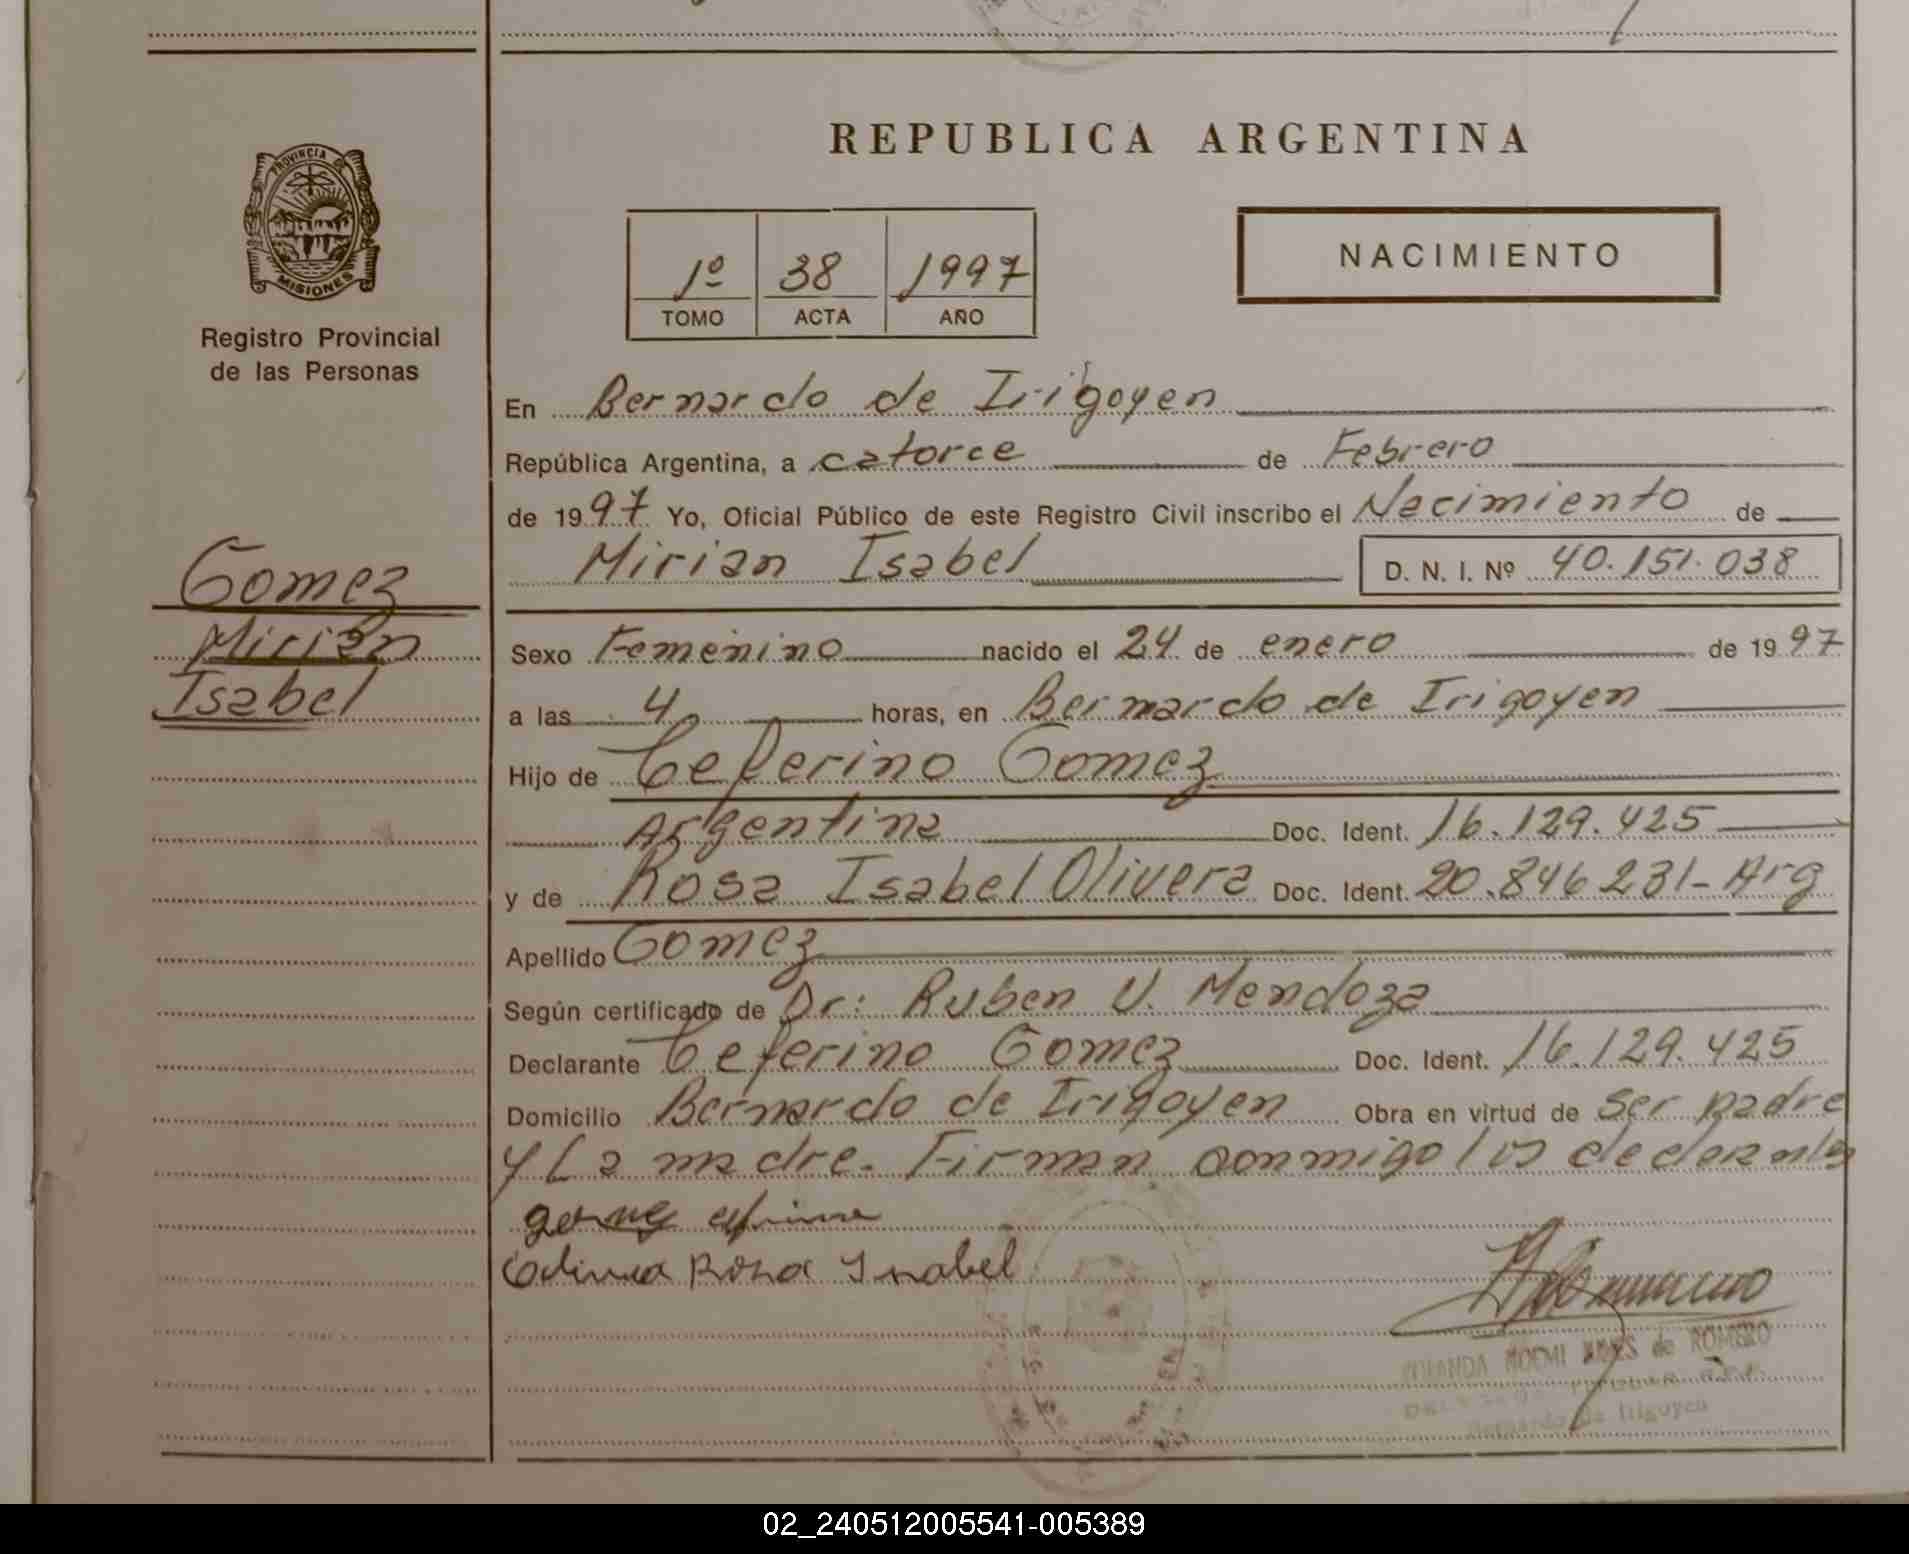 REPUBLICA ARGENTINA
PROVINCIA DE
MISIONES
Registro Provincial
de las Personas
1º 38 1997
TOMO ACTA AÑO
NACIMIENTO
En Bernardo de Irigoyen
República Argentina, a catorce de Febrero
de 1997 Yo, Oficial Público de este Registro Civil inscribo el Nacimiento de
Mirian Isabel D. N. I. Nº 40.151.038
Gomez
Mirian
Isabel
Sexo Femenino nacido el 24 de enero de 1997
a las 4 horas, en Bernardo de Irigoyen
Hijo de Ceferino Gomez
Argentina Doc. Ident. 16.129.425
y de Rosa Isabel Olivera Doc. Ident. 20.846231- Arg
Apellido Gomez
Según certificado de Dr: Ruben V. Mendoza
Declarante Ceferino Gomez Doc. Ident. 16.129.425
Domicilio Bernardo de Irigoyen Obra en virtud de ser padre
y La madre. Firman conmigo los declarantes
Olivera Rosa Isabel
NOEMI de ROMERO
Bernardo de Irigoyen
02_240512005541-005389